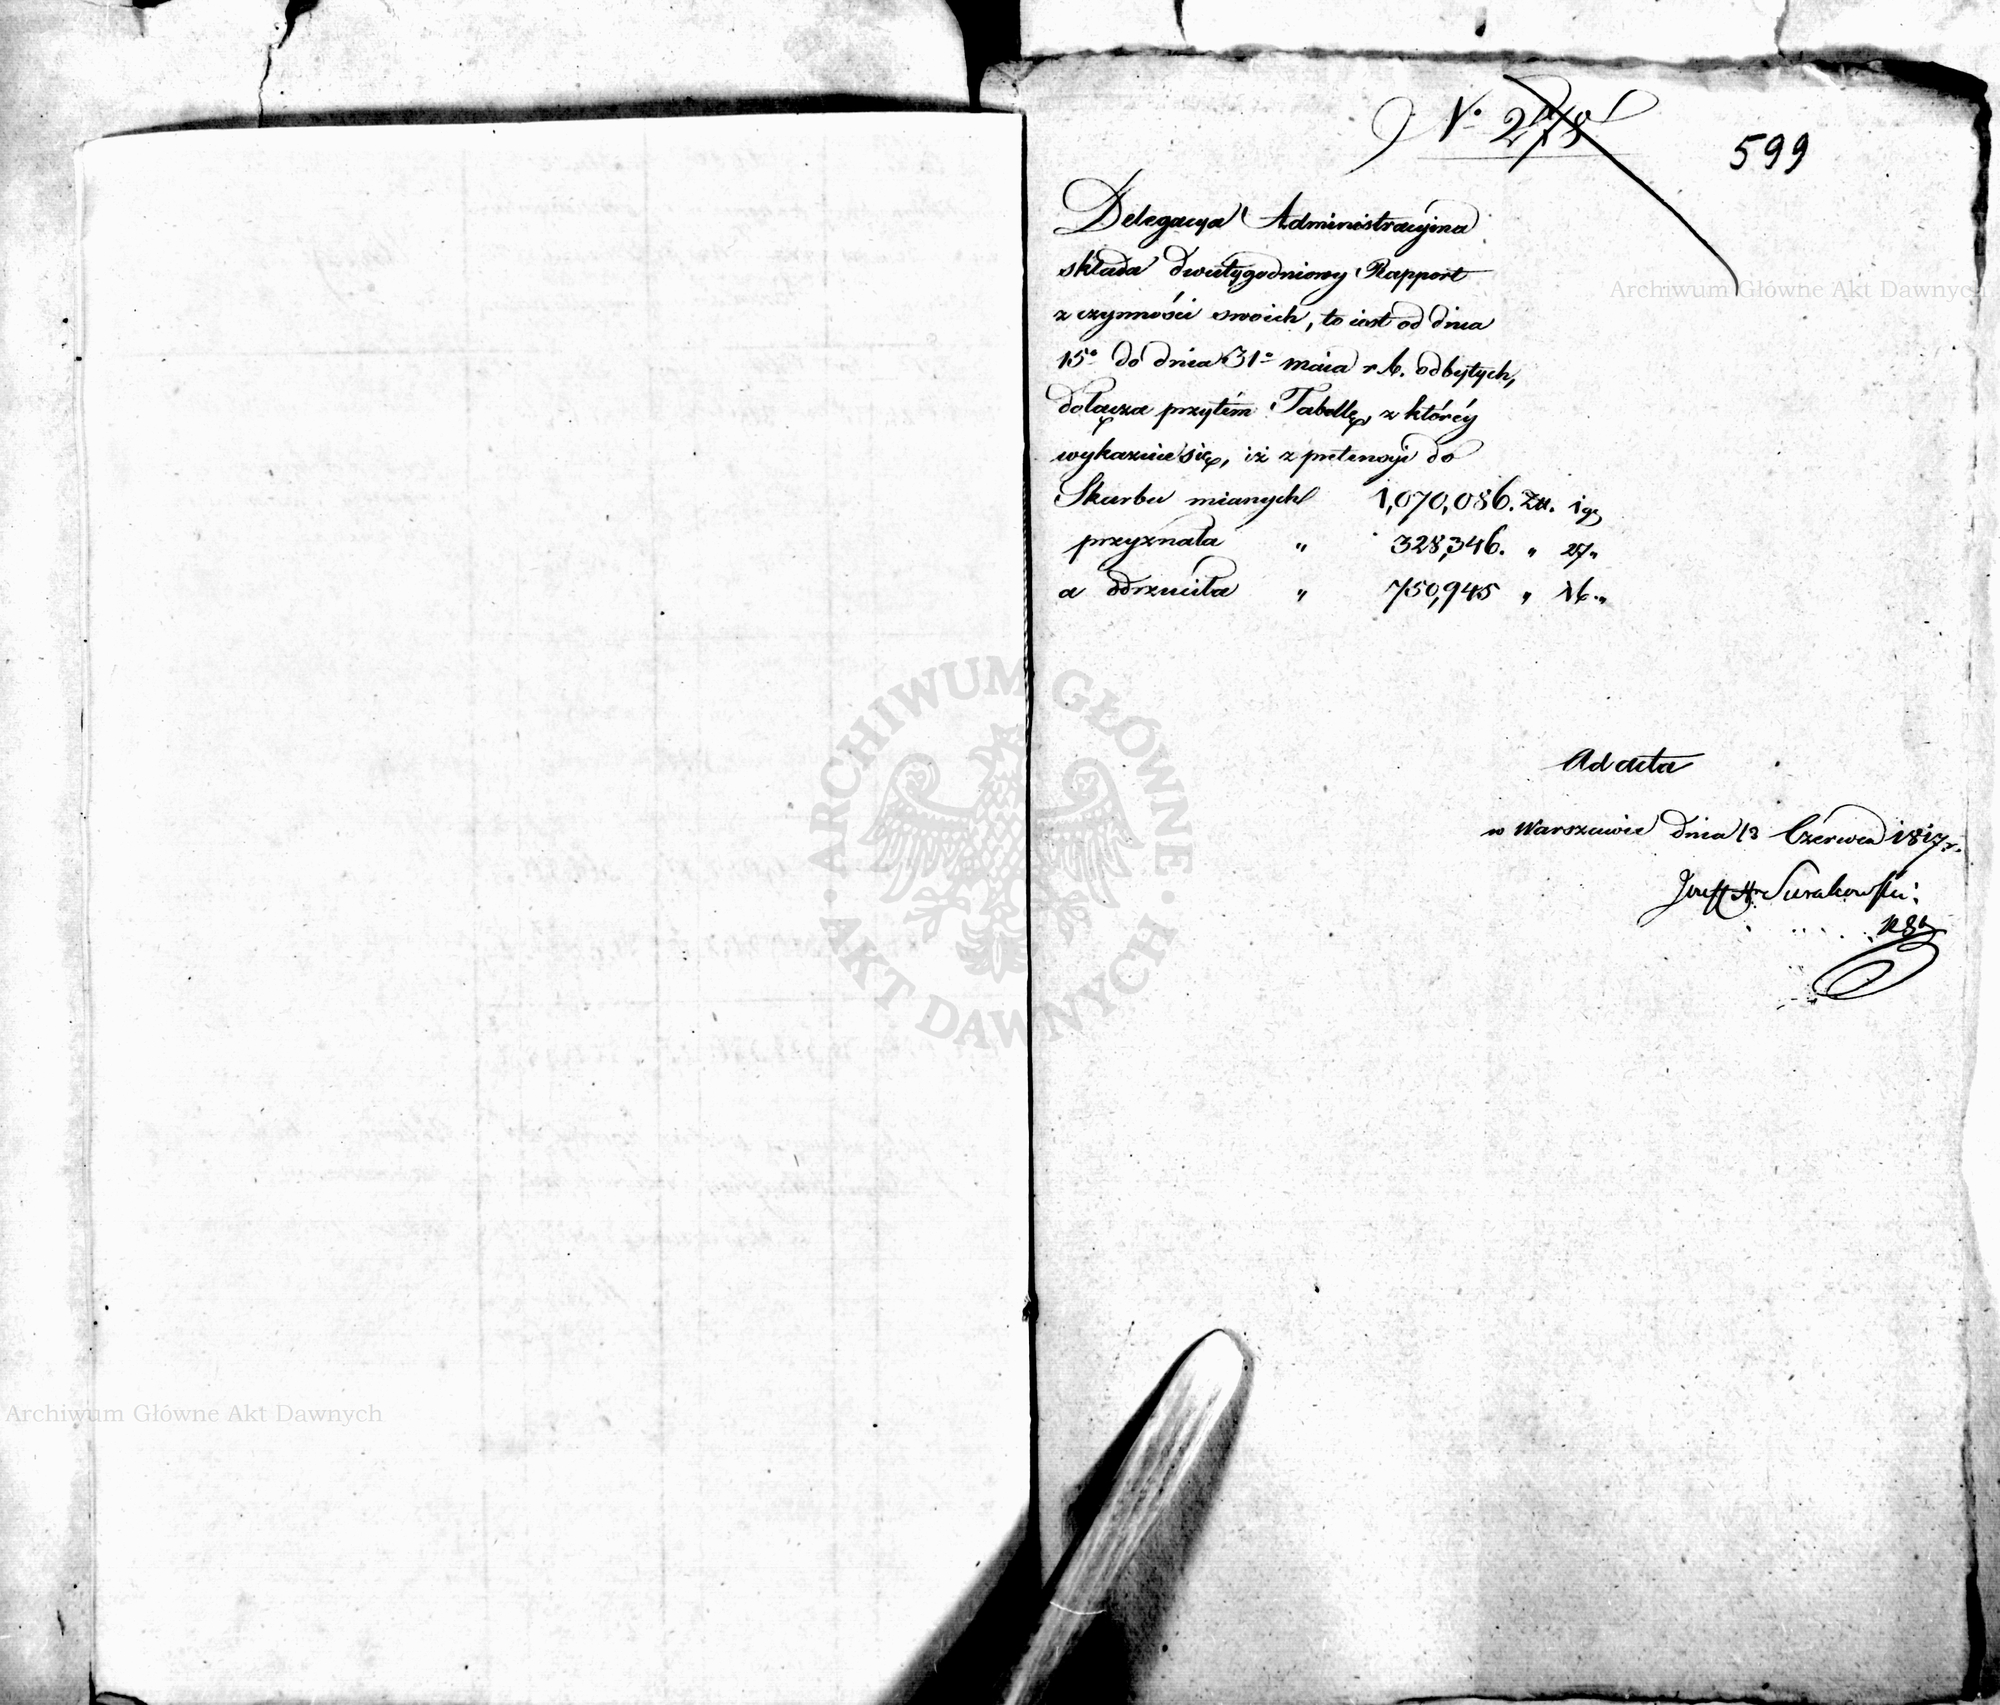 N° 278
599
Delegacya Administracyina
składa dwutygodniowy Rapport
z czynności swoich, to iest od dnia
15° do dnia 31° maia r. b. odbytych,
dołącza przytém Tabellę, z któréy
wykazuie się, iż z pretensyi do
Skarbu mianych 1,070,086. Zł. 1 gr
przyznała " 328,346. " 27 "
a odrzuciła " 750,945 " 16. "
Ad acta
w Warszawie dnia 13 Czerwca 1817 r.
Józeff Hr Sierakowski
RSt
Archiwum Główne Akt Dawnych
ARCHIWUM GŁÓWNE
AKT DAWNYCH
Archiwum Główne Akt Dawnych